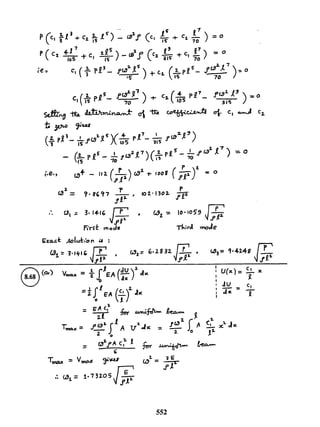 P (c₁ 2/5 l³ + c₂ 2/15 l⁵) − ω² ρ (c₁ l⁵/15 + c₂ l⁷/70) = 0
P (c₂ 4 l⁷/105 + c₁ l⁵/15) − ω² ρ (c₂ l⁹/315 + c₁ l⁷/70) = 0
i.e., c₁ (P l³ − ρω² l⁵/15) + c₂ (2/15 P l⁵ − ρω² l⁷/70) = 0
c₁ (2/15 P l⁵ − ρω² l⁷/70) + c₂ (4/105 P l⁷ − ρω² l⁹/315) = 0
Setting the determinant of the coefficients of c₁ and c₂
to zero gives
i.e., ω⁴ − 112 (P/ρl²) ω² + 1008 (P/ρl²)² = 0
ω² = 9.8697 P/ρl², 102.1302 P/ρl²
∴ ω₁ = 3.1416 √(P/ρl²), ω₂ = 10.1059 √(P/ρl²)
First mode Third mode
Exact solution is :
ω₁ = 3.1416 √(P/ρl²), ω₂ = 6.2832 √(P/ρl²), ω₃ = 9.4248 √(P/ρl²)
8.68 (a) Vmax = 1/2 ∫₀ˡ EA (dU/dx)² dx
U(x) = c₁/l x
= 1/2 ∫₀ˡ EA (c₁/l)² dx
dU/dx = c₁/l
= EA c₁²/2l for uniform beam
Tmax = ρω²/2 ∫₀ˡ A U² dx = ρω²/2 ∫₀ˡ A c₁²/l² x² dx
= ω² ρ A c₁² l/6 for uniform beam
Tmax = Vmax gives ω² = 3E/ρl²
∴ ω₁ = 1.73205 √(E/ρl²)
552